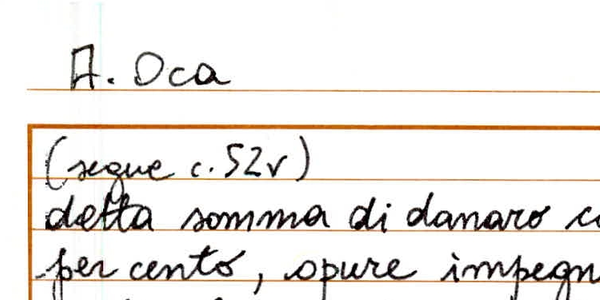 A. Oca
(segue c. 52v)
detta somma di danaro
per cento, opure impegn